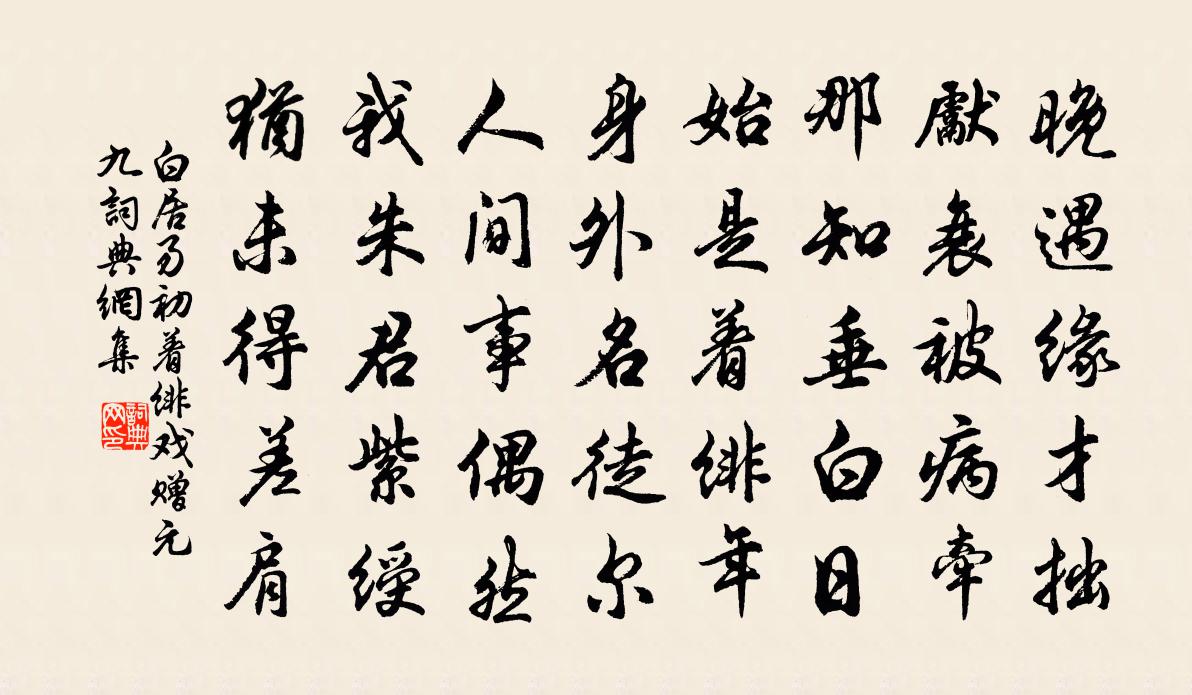 晚遇緣才拙
獻衰被病牽
那知垂白日
始是着緋年
身外名徒尔
人间事偶然
我朱君紫綬
猶未得差肩
白居易初着緋戏赠元
九詞典網集
詞典网印